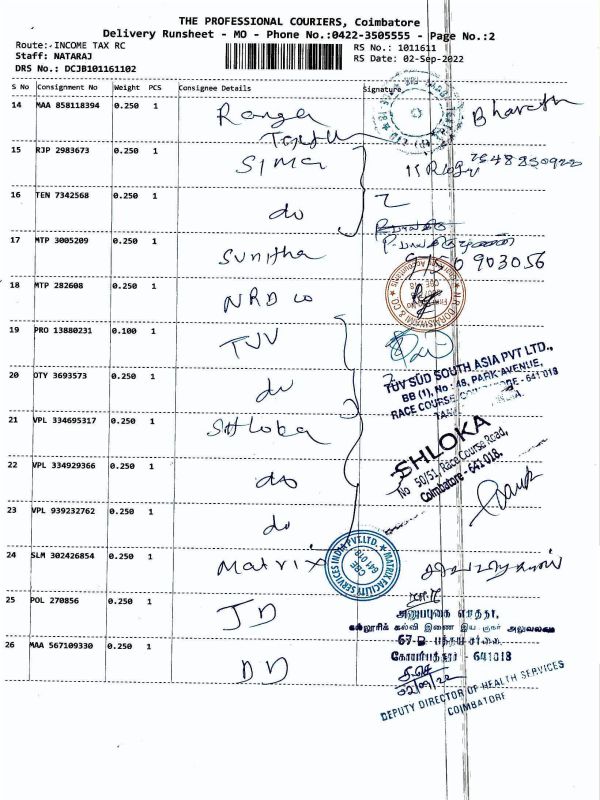 THE PROFESSIONAL COURIERS, Coimbatore
Delivery Runsheet - MO - Phone No.:0422-3505555 - Page No.:2
Route:-INCOME TAX RC
RS No.: 1011611
Staff: NATARAJ
RS Date: 02-Sep-2022
DRS No.: DCJB101161102
S No Consignment No Weight PCS Consignee Details Signature
14 MAA 858118394 0.250 1 Ranga Bharath
15 RJP 2983673 0.250 1 Sima
16 TEN 7342568 0.250 1 do
17 MTP 3005209 0.250 1 Sunitha
18 MTP 282608 0.250 1 NRD co
N.R. DORAISWAMI & CO
19 PRO 13880231 0.100 1 TUV
TÜV SÜD SOUTH ASIA PVT LTD.,
BB (1), No : 48, PARK AVENUE,
RACE COURSE, - 641 018
20 OTY 3693573 0.250 1 do
21 VPL 334695317 0.250 1 Shloka
SHLOKA
No 50/51, Race Course Road,
Coimbatore - 641 018.
22 VPL 334929366 0.250 1 do
23 VPL 939232762 0.250 1 do
24 SLM 302426854 0.250 1 Matrix
MATRIX FACILITY SERVICES INDIA PVT.LTD.
CBE
641 018
25 POL 270856 0.250 1 JD
கல்லூரிக் கல்வி இணை இயக்குநர் அலுவலகம்
கோயம்புத்தூர் - 641018
26 MAA 567109330 0.250 1 DD
02/09/22
DEPUTY DIRECTOR OF HEALTH SERVICES
COIMBATORE